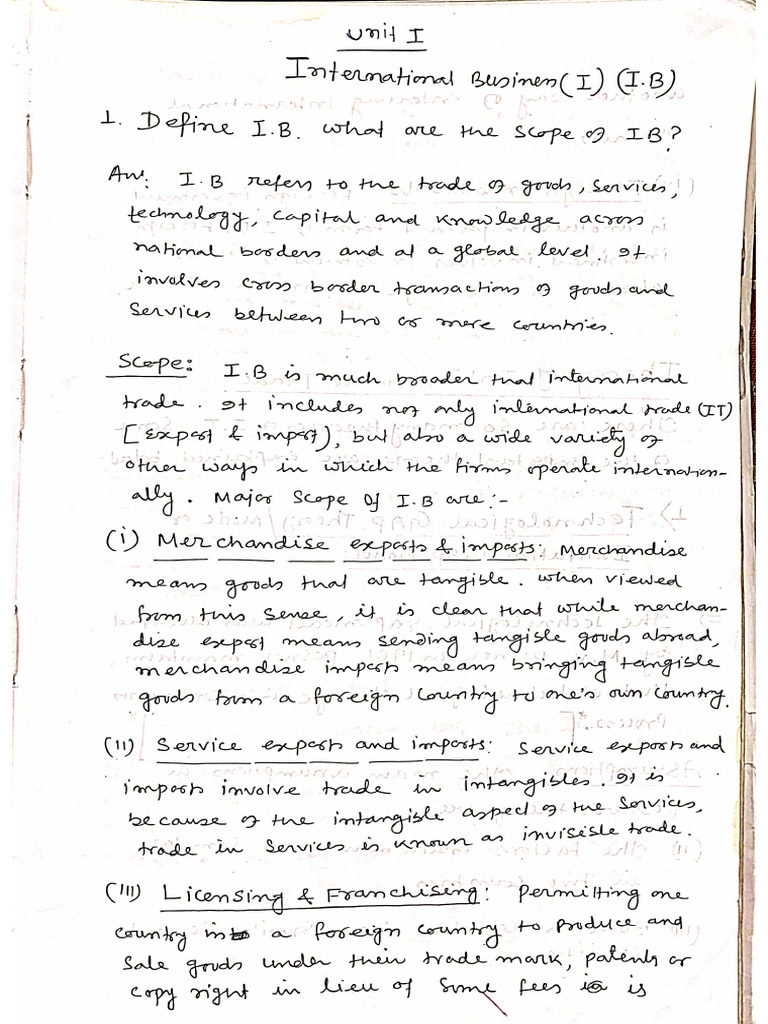 Unit I
International Business (I) (I.B)
1. Define I.B. what are the scope of IB?
Ans: I.B refers to the trade of goods, services,
technology, capital and knowledge across
national borders and at a global level. It
involves cross border transactions of goods and
services between two or more countries.
Scope: I.B is much broader that international
trade. It includes not only international trade (IT)
[Export & import), but also a wide variety of
other ways in which the firms operate internation-
ally. Major scope Of I.B are:-
(i) Merchandise exports & imports: Merchandise
means goods that are tangible. when viewed
from this sense, it is clear that while merchan-
dise export means sending tangible goods abroad,
merchandise imports means bringing tangible
goods from a foreign country to one's own country.
(ii) Service exports and imports: Service exports and
imports involve trade in intangibles. It is
because of the intangible aspect of the services,
trade in services is known as invisible trade.
(iii) Licensing & Franchising: Permitting one
country in a foreign country to produce and
sale goods under their trade mark, patents or
copy right in lieu of some fees is